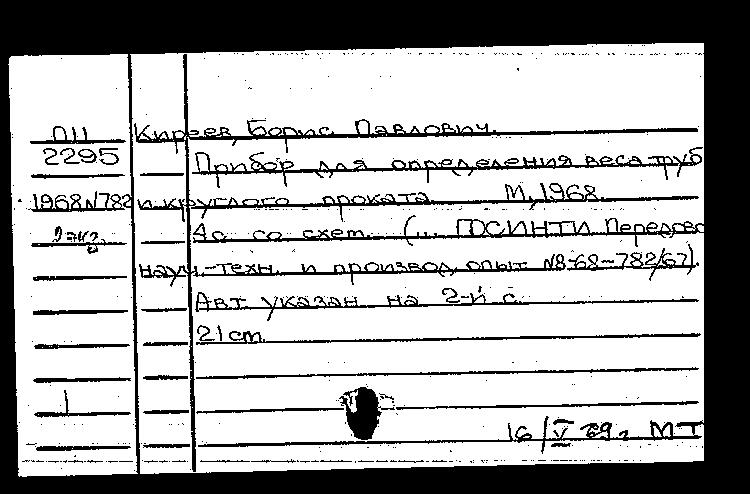 ПН Киреев, Борис Павлович.
2295 Прибор для определения веса труб
1968 N782 и круглого проката М, 1968.
4с со схем. (... ГОСИНТИ Передово
научн.-техн. и производ. опыт N8-68-782/67).
Авт. указан на 2-й с.
21 cm
1
16/V 69г. МТ